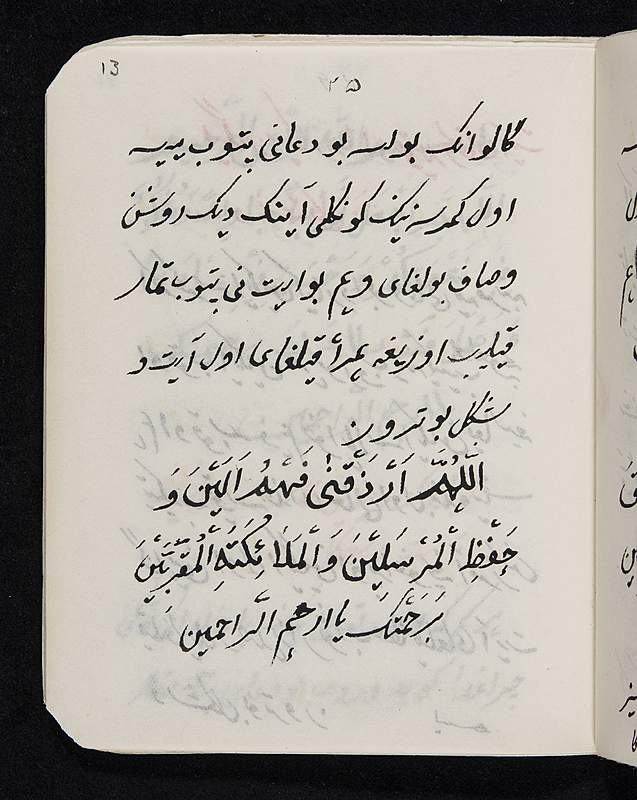 13
٢٥
گالوانک بولسه بو دعانی پتوب ییسه
اول کمرسه نیک کونکلی آینک دیک روشن
و صاف بولغای و یم بو ایت نی پتوب تمار
قیلیب اوزیغه یمرأ قیلغای اول آیت و
شکل بو ترور
اَللّٰهُمَّ اَرْزُقْنٖی فَهْمُ اَلَیَّنَ وَ
حِفْظِ الْمُرْسَلِیْنَ وَالْمَلَائِكَتِهِ الْمُقَرَّبَیْنَ
بَرَحْمَتِكَ یا ارحم الراحمین